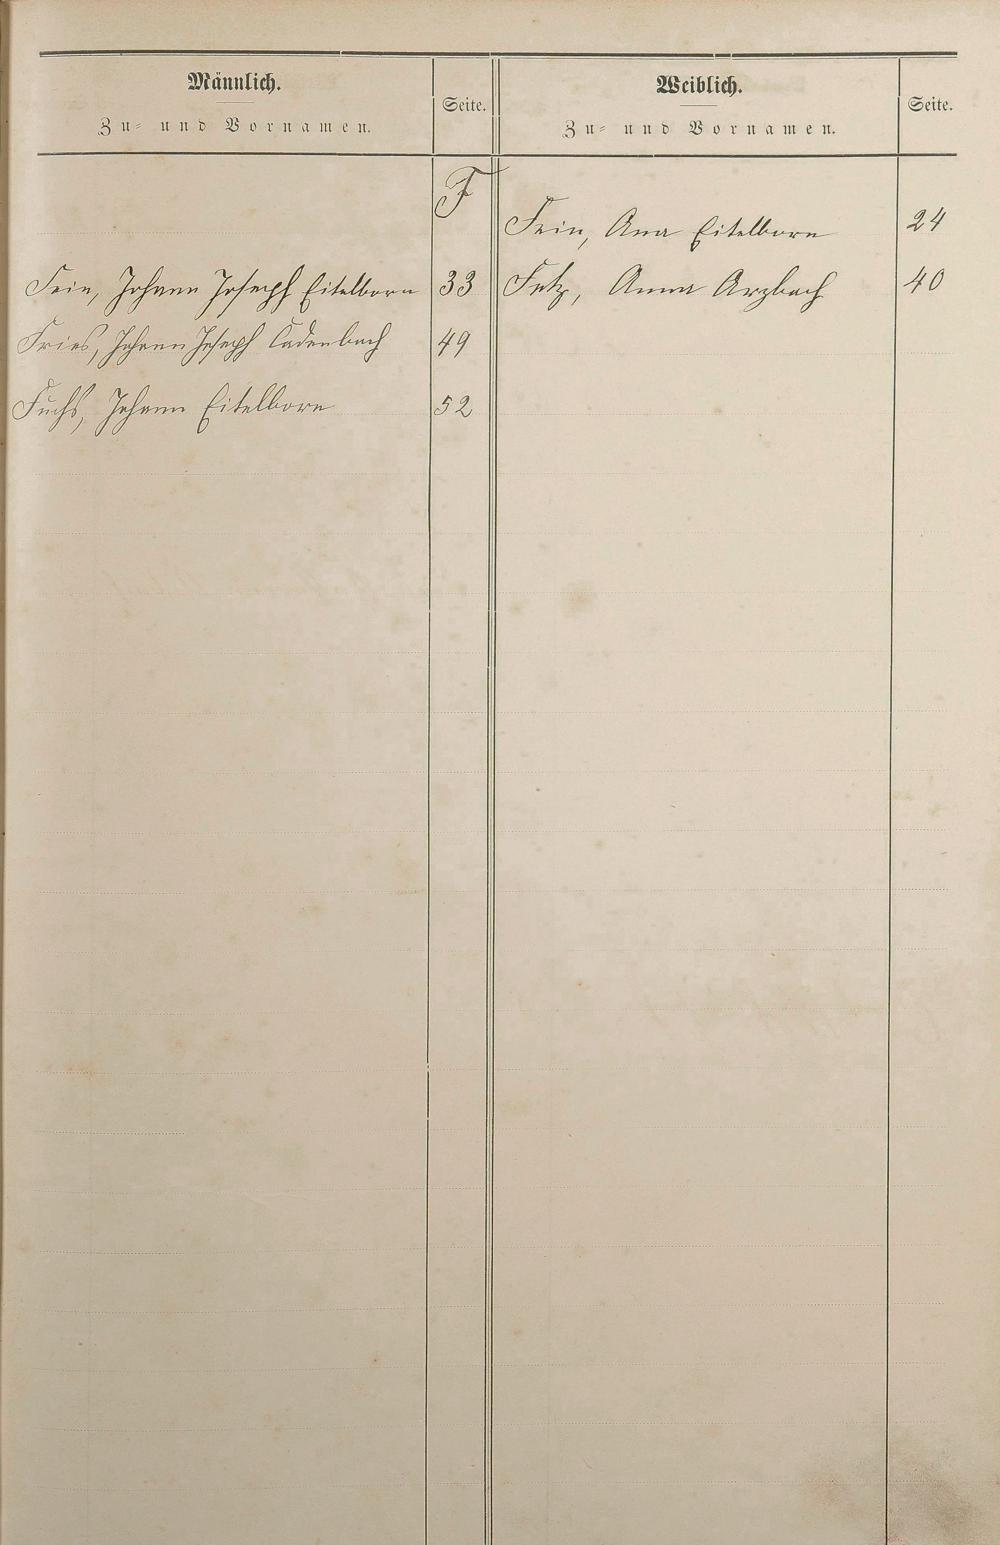 Männlich.
Zu- und Vornamen.
Seite.
Weiblich.
Zu- und Vornamen.
Seite.
F
Fein, Johann Joseph Eitelborn 33
Fries, Johann Joseph Cadenbach 49
Fuchs, Johann Eitelborn 52
Fein, Ana Eitelborn 24
Fetz, Anna Arzbach 40